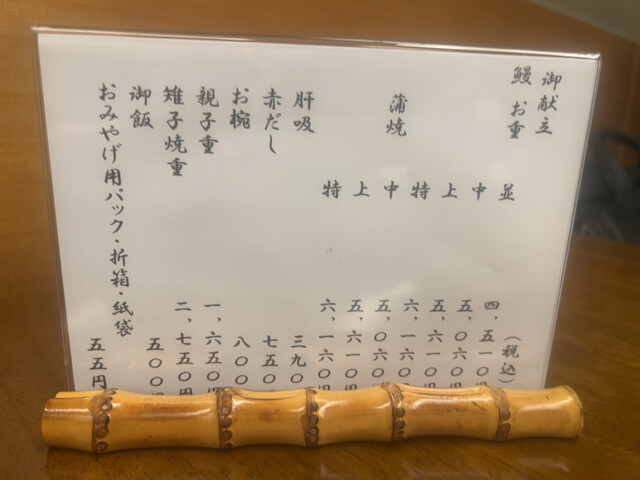 御献立
(税込)
鰻 お重 並 四、五一〇円
中 五、〇六〇
上 五、六一〇
特 六、一六〇円
蒲焼 中 五、〇六〇
上 五、六一〇
特 六、一六〇円
肝吸 三九〇
赤だし 七五〇
お椀 八〇〇
親子重 一、六五〇円
雉子焼重 二、七五〇円
御飯 五〇〇円
おみやげ用パック・折箱・紙袋 五五円